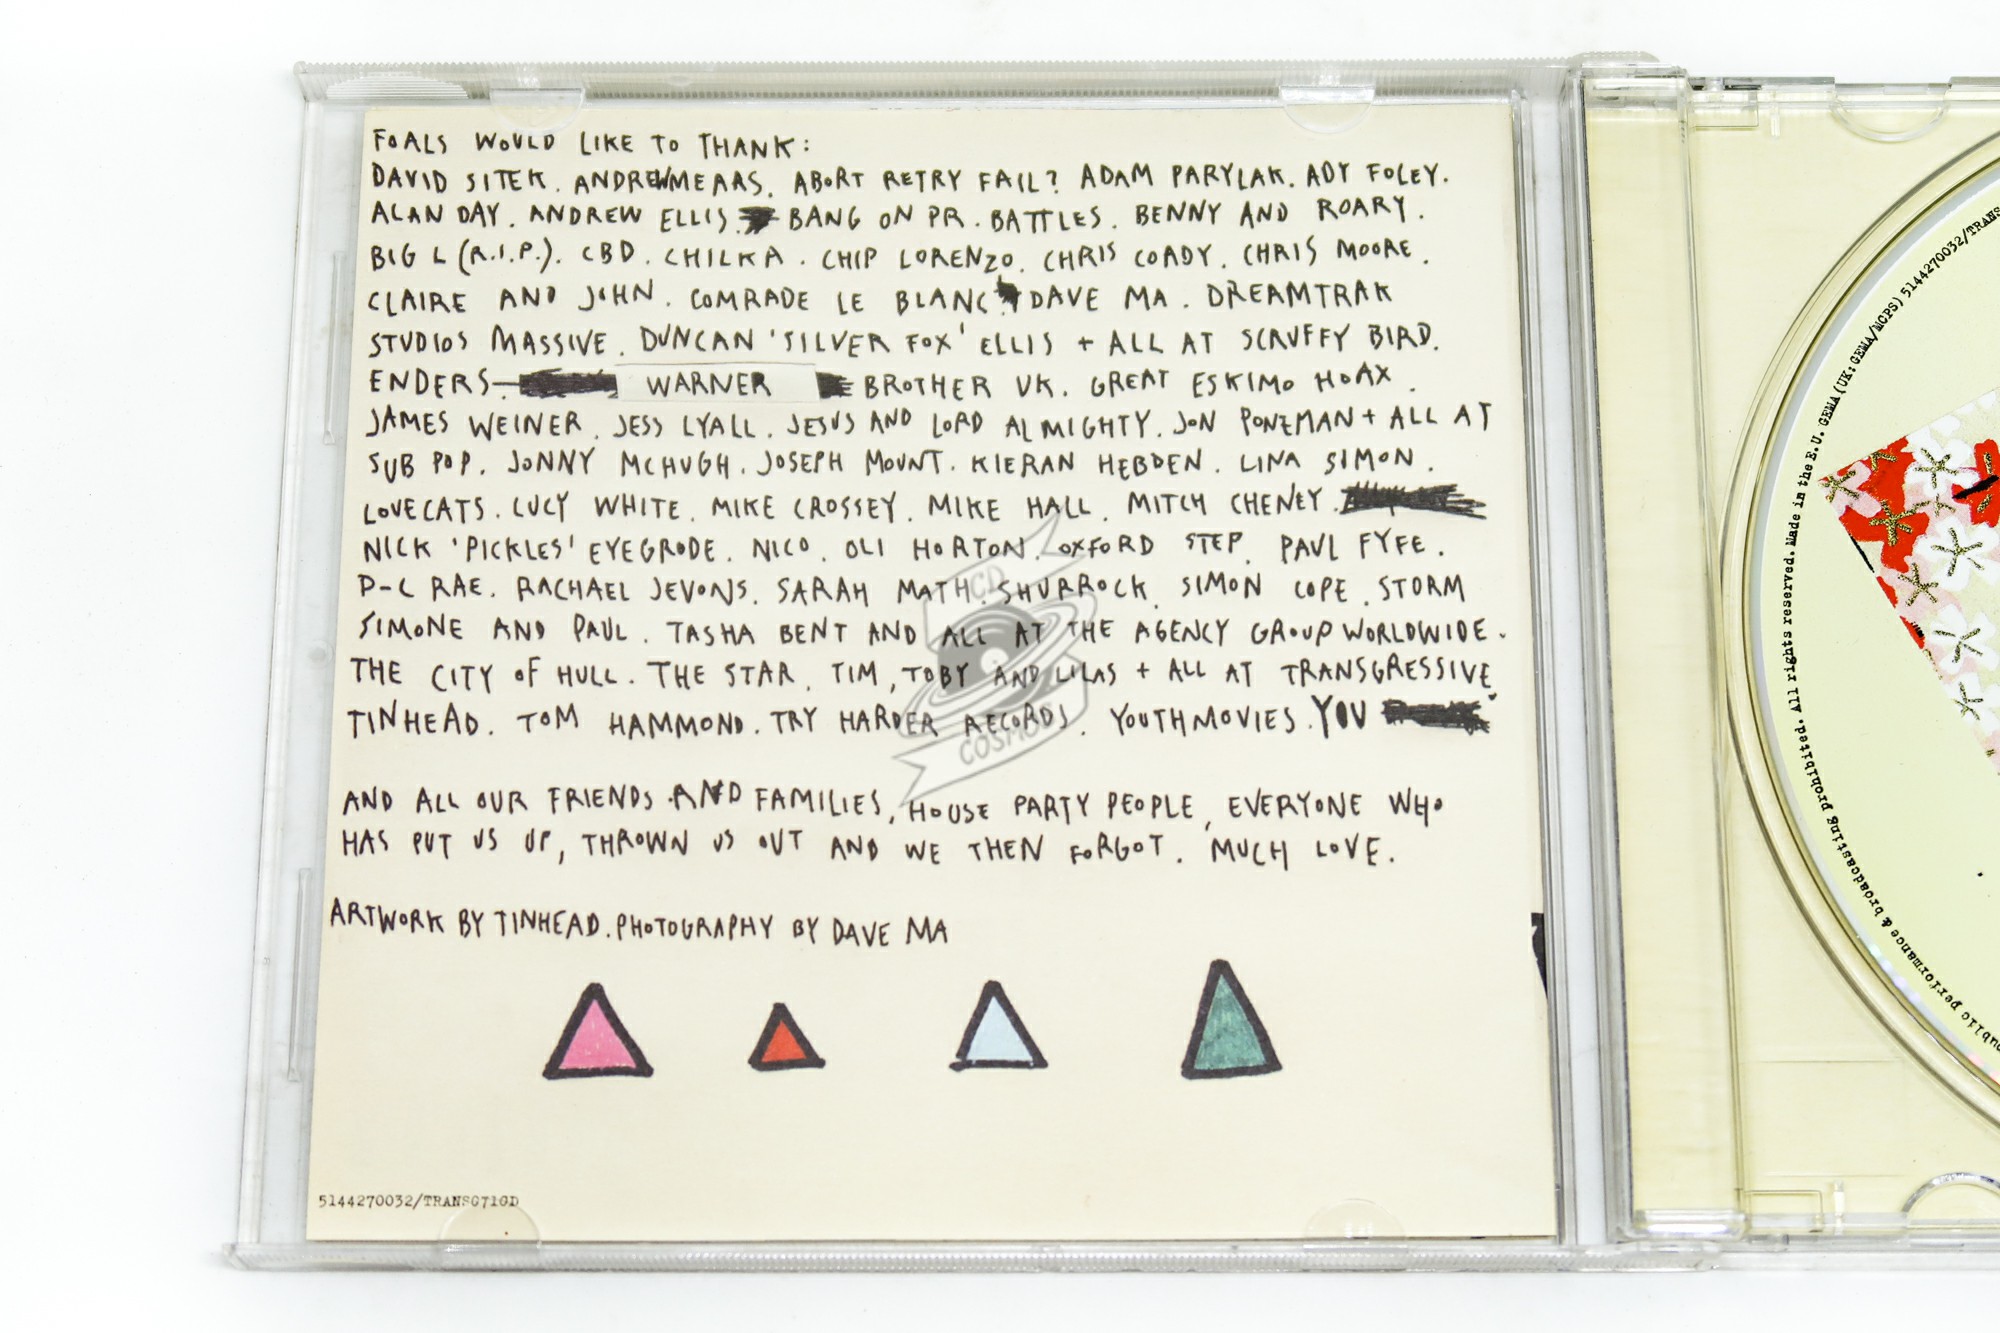 FOALS WOULD LIKE TO THANK:
DAVID SITEK. ANDREW MEARS. ABORT RETRY FAIL? ADAM PARYLAK. ADY FOLEY.
ALAN DAY. ANDREW ELLIS. BANG ON PR. BATTLES. BENNY AND ROARY.
BIG L (R.I.P.). CBD. CHILKA. CHIP LORENZO. CHRIS COADY. CHRIS MOORE.
CLAIRE AND JOHN. COMRADE LE BLANC. DAVE MA. DREAMTRAK
STUDIOS MASSIVE. DUNCAN 'SILVER FOX' ELLIS + ALL AT SCRUFFY BIRD.
ENDERS WARNER BROTHER UK. GREAT ESKIMO HOAX.
JAMES WEINER. JESS LYALL. JESUS AND LORD ALMIGHTY. JON PONEMAN + ALL AT
SUB POP. JONNY MCHUGH. JOSEPH MOUNT. KIERAN HEBDEN. LINA SIMON.
LOVECATS. LUCY WHITE. MIKE CROSSEY. MIKE HALL. MITCH CHENEY.
NICK 'PICKLES' EYEGRODE. NICO. OLI HORTON. OXFORD STEP. PAUL FYFE.
P-C RAE. RACHAEL JEVONS. SARAH MATH. SHURROCK. SIMON COPE. STORM
SIMONE AND PAUL. TASHA BENT AND ALL AT THE AGENCY GROUP WORLDWIDE.
THE CITY OF HULL. THE STAR. TIM, TOBY AND LILAS + ALL AT TRANSGRESSIVE.
TINHEAD. TOM HAMMOND. TRY HARDER RECORDS. YOUTHMOVIES. YOU
AND ALL OUR FRIENDS AND FAMILIES, HOUSE PARTY PEOPLE, EVERYONE WHO
HAS PUT US UP, THROWN US OUT AND WE THEN FORGOT. MUCH LOVE.
ARTWORK BY TINHEAD. PHOTOGRAPHY BY DAVE MA
5144270032/TRANSG71GD
CD
COSMOS
public performance & broadcasting prohibited. All rights reserved. Made in the E.U. GEMA (UK: GEMA/MCPS) 5144270032/TRANS